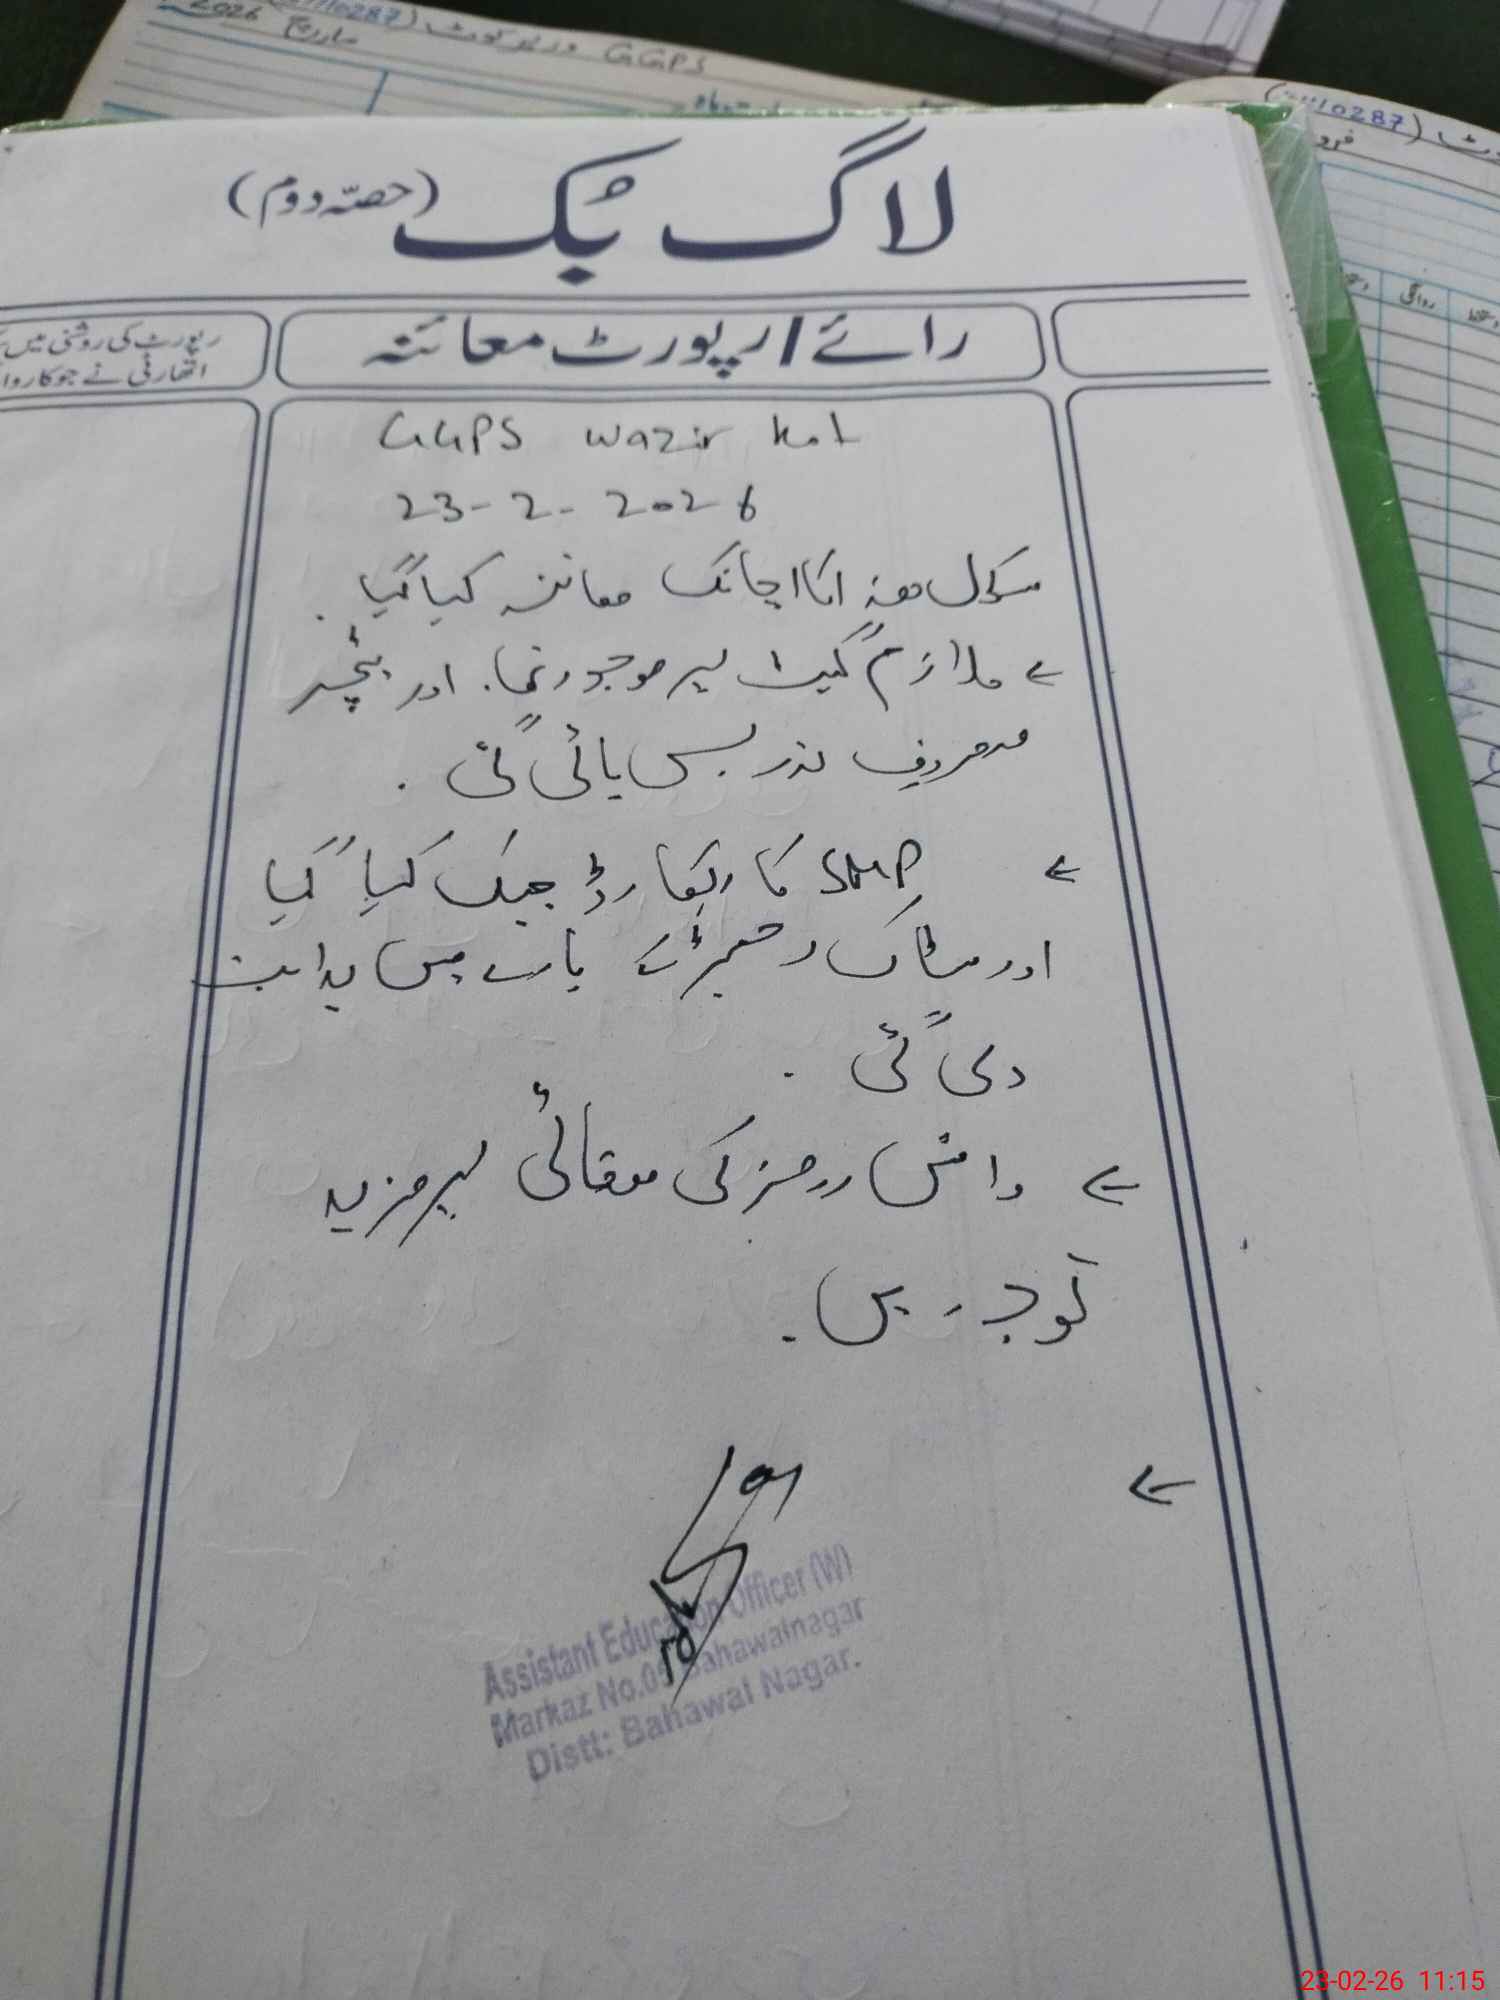 2026 مارچ
GGPS وزیر کوٹ (3110287)
لاگ بُک (حصّہ دوم)
رائے / رپورٹ معائنہ
رپورٹ کی روشنی میں
اتھارٹی نے جو کاروا
GGPS Wazir Kot
23-2-2026
سکول ھذا کا اچانک معائنہ کیا گیا.
← ملازم گیٹ پر موجود تھا. اور ٹیچر
مصروفِ تدریس پائی گئی.
← SMP کا ریکارڈ چیک کیا گیا
اور سٹاک رجسٹر کے بارے میں ہدایت
دی گئی.
← واش رومز کی صفائی پر مزید
توجہ دیں.
←
Assistant Education Officer (W)
Markaz No.0 Bahawalnagar
Distt: Bahawal Nagar.
10287)
روانگی
دستخط
23-02-26 11:15